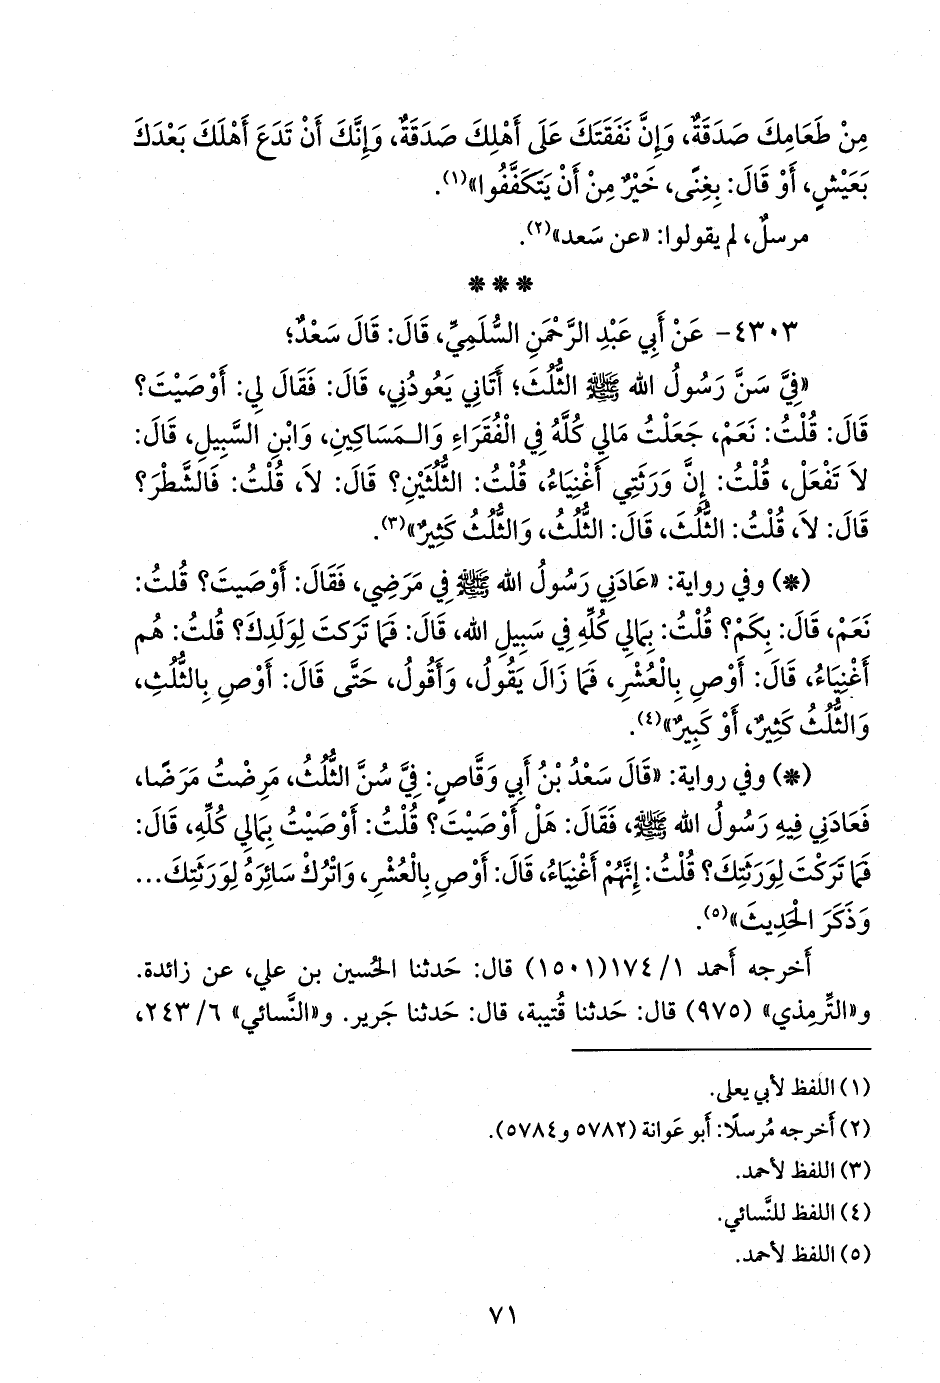 مِنْ طَعَامِكَ صَدَقَةٌ، وَإِنَّ نَفَقَتَكَ عَلَى أَهْلِكَ صَدَقَةٌ، وَإِنَّكَ أَنْ تَدَعَ أَهْلَكَ بَعْدَكَ
بَعَيْشٍ، أَوْ قَالَ: بِغِنًى، خَيْرٌ مِنْ أَنْ يَتَكَفَّفُوا»(١).
مرسلٌ، لم يقولوا: «عن سَعد»(٢).
* * *
٤٣٠٣- عَنْ أَبِي عَبْدِ الرَّحْمَنِ السُّلَمِيِّ، قَالَ: قَالَ سَعْدٌ؛
«فِيَّ سَنَّ رَسُولُ الله ﷺ الثُّلُثَ؛ أَتَانِي يَعُودُنِي، قَالَ: فَقَالَ لِي: أَوْصَيْتَ؟
قَالَ: قُلْتُ: نَعَمْ، جَعَلْتُ مَالِي كُلَّهُ فِي الْفُقَرَاءِ وَالْـمَسَاكِينِ، وَابْنِ السَّبِيلِ، قَالَ:
لاَ تَفْعَلْ، قُلْتُ: إِنَّ وَرَثَتِي أَغْنِيَاءُ، قُلْتُ: الثُّلُثَيْنِ؟ قَالَ: لاَ، قُلْتُ: فَالشَّطْرَ؟
قَالَ: لاَ، قُلْتُ: الثُّلُثَ، قَالَ: الثُّلُثُ، وَالثُّلُثُ كَثِيرٌ»(٣).
(*) وفي رواية: «عَادَنِي رَسُولُ الله ﷺ فِي مَرَضِي، فَقَالَ: أَوْصَيتَ؟ قُلتُ:
نَعَمْ، قَالَ: بِكَمْ؟ قُلْتُ: بِمَالِي كُلِّهِ فِي سَبِيلِ الله، قَالَ: فَمَا تَرَكتَ لِوَلَدِكَ؟ قُلتُ: هُم
أَغْنِيَاءُ، قَالَ: أَوْصِ بِالْعُشْرِ، فَمَا زَالَ يَقُولُ، وَأَقُولُ، حَتَّى قَالَ: أَوْصِ بِالثُّلُثِ،
وَالثُّلُثُ كَثِيرٌ، أَوْ كَبِيرٌ»(٤).
(*) وفي رواية: «قَالَ سَعْدُ بْنُ أَبِي وَقَّاصٍ: فِيَّ سُنَّ الثُّلُثُ، مَرِضْتُ مَرَضًا،
فَعَادَنِي فِيهِ رَسُولُ الله ﷺ، فَقَالَ: هَلْ أَوْصَيْتَ؟ قُلْتُ: أَوْصَيْتُ بِمَالِي كُلِّهِ، قَالَ:
فَمَا تَرَكْتَ لِوَرَثَتِكَ؟ قُلْتُ: إِنَّهُمْ أَغْنِيَاءُ، قَالَ: أَوْصِ بِالْعُشْرِ، وَاتْرُكْ سَائِرَهُ لِوَرَثَتِكَ...
وَذَكَرَ الْحَدِيثَ»(٥).
أَخرجه أَحمد ١/ ١٧٤(١٥٠١) قال: حَدثنا الحُسين بن علي، عن زائدة.
و«التِّرمِذي» (٩٧٥) قال: حَدثنا قُتيبة، قال: حَدثنا جَرير. و«النَّسائي» ٦/ ٢٤٣،
(١) اللفظ لأبي يعلى.
(٢) أَخرجه مُرسلًا: أَبو عَوانة (٥٧٨٢ و٥٧٨٤).
(٣) اللفظ لأحمد.
(٤) اللفظ للنَّسائي.
(٥) اللفظ لأحمد.
٧١